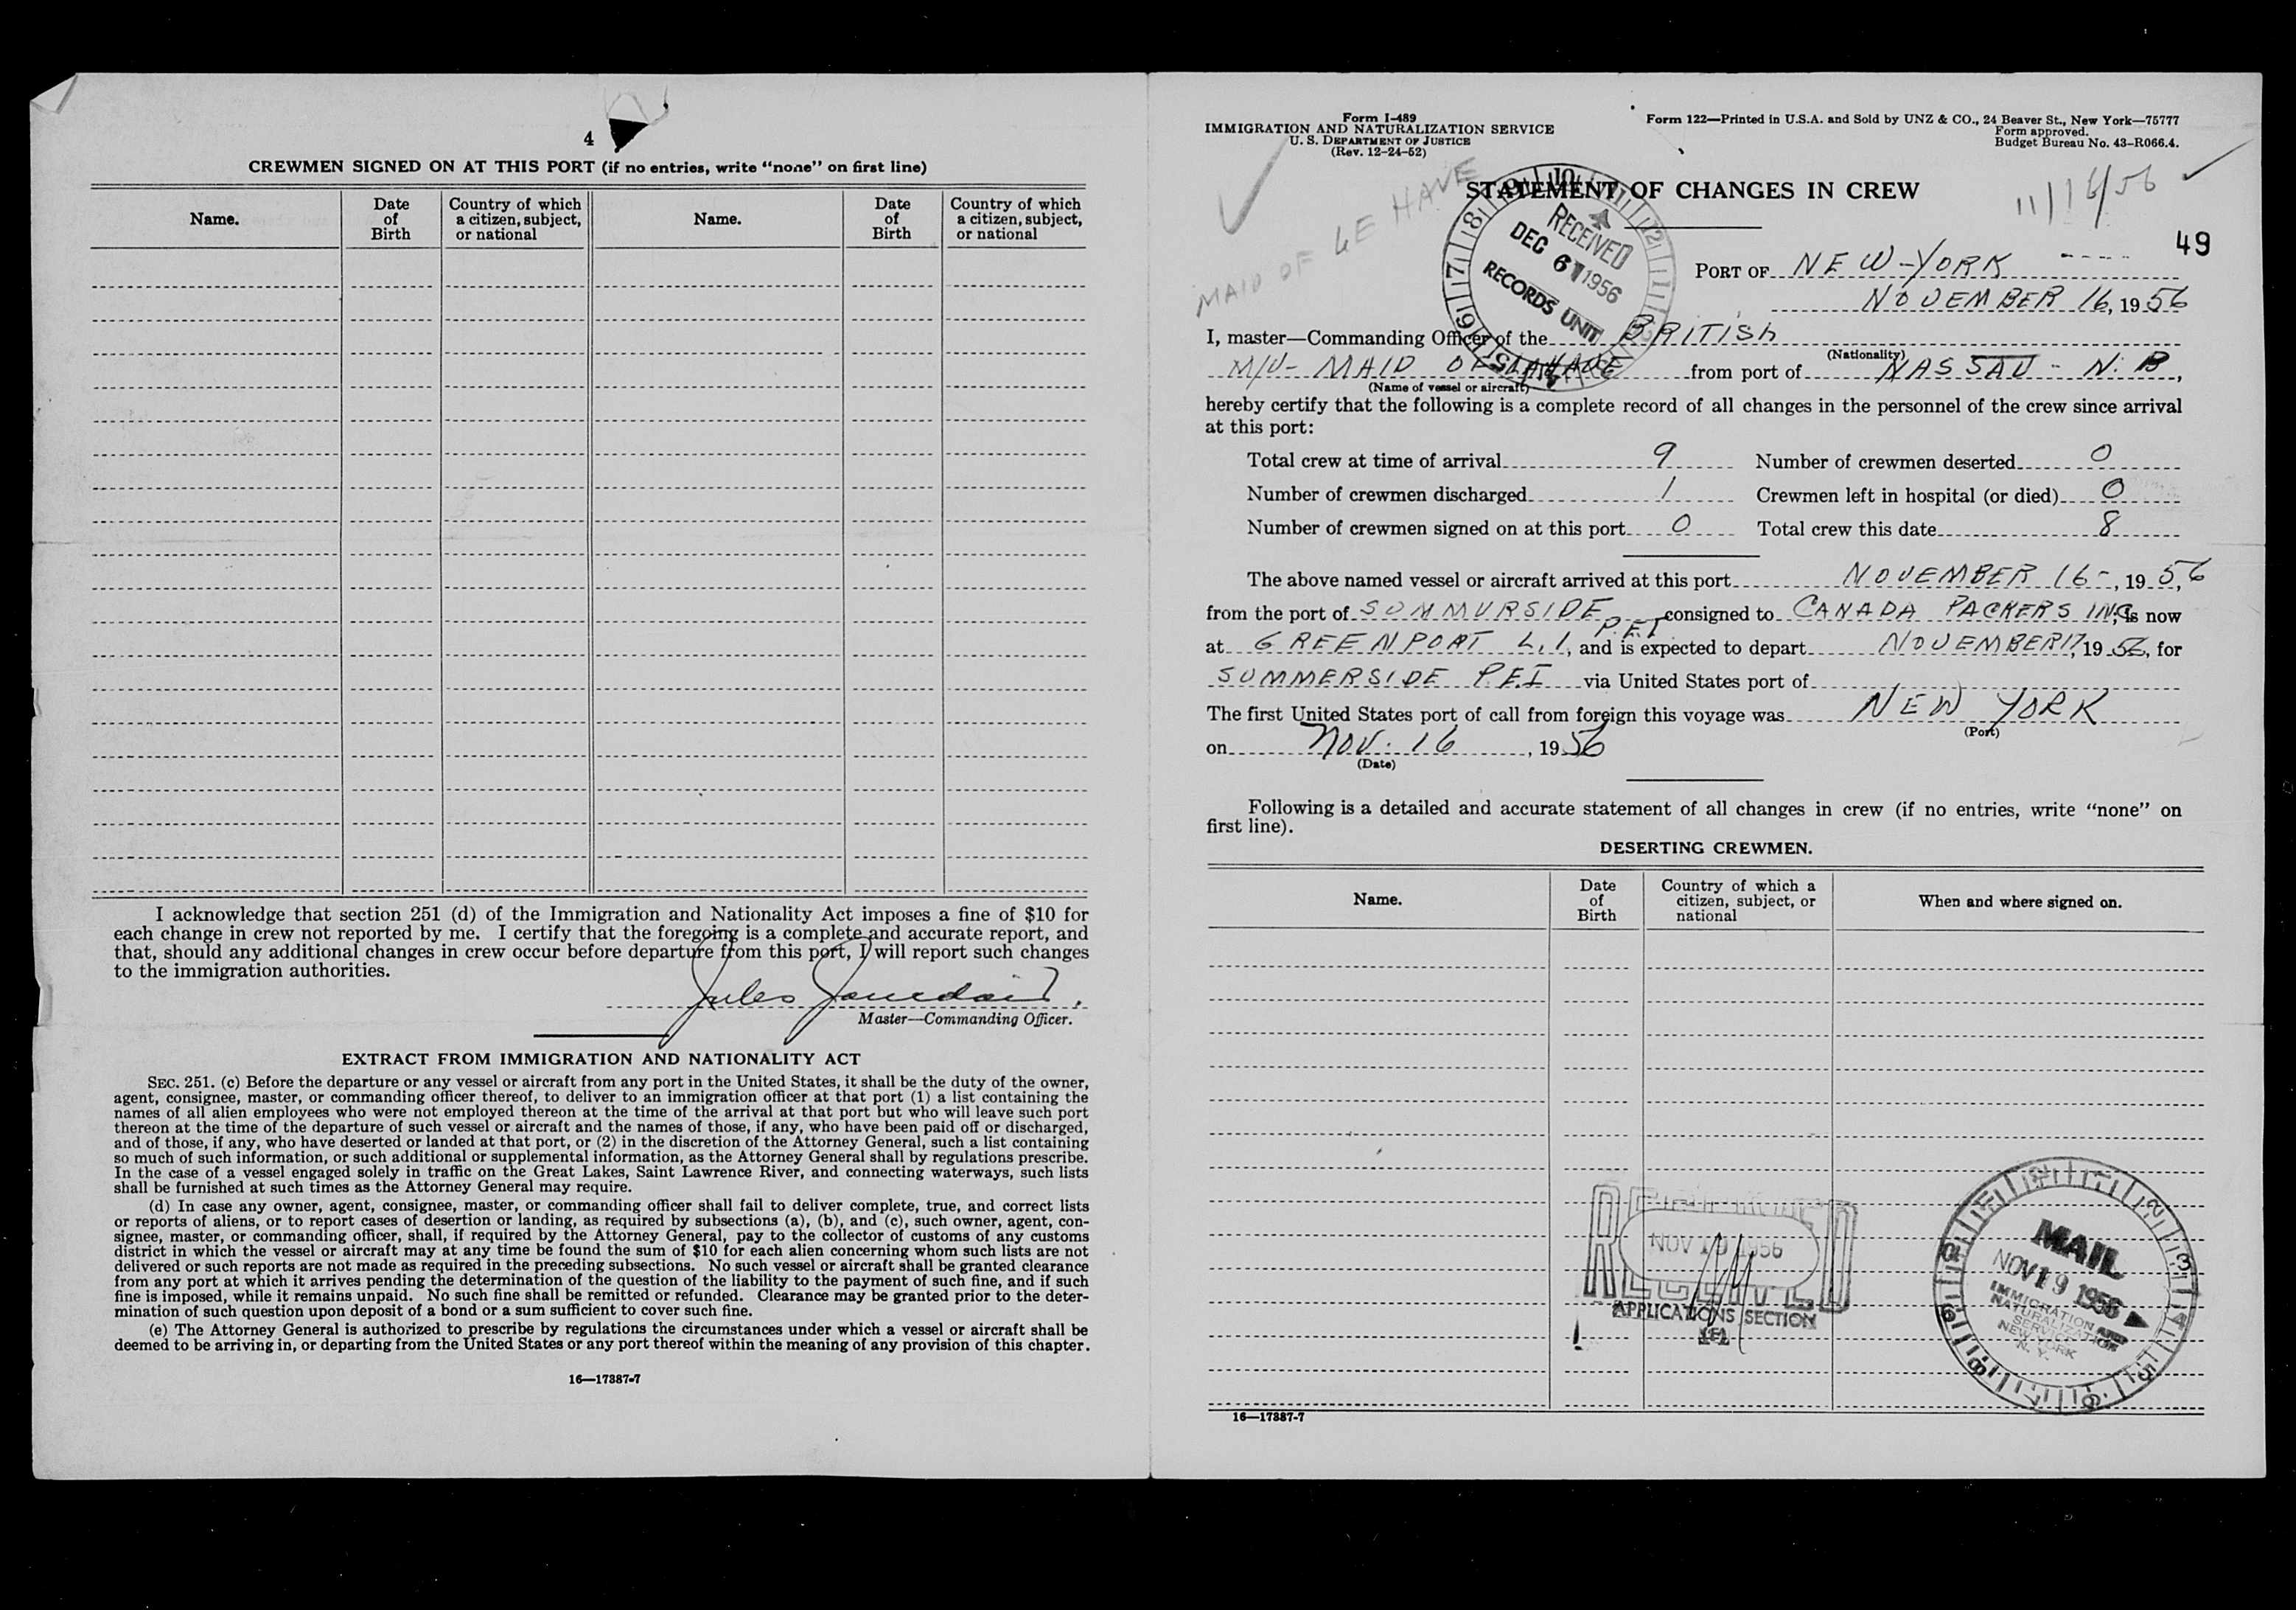 4
CREWMEN SIGNED ON AT THIS PORT (if no entries, write “none” on first line)
Name.
Date of Birth
Country of which a citizen, subject, or national
Name.
Date of Birth
Country of which a citizen, subject, or national
I acknowledge that section 251 (d) of the Immigration and Nationality Act imposes a fine of $10 for
each change in crew not reported by me. I certify that the foregoing is a complete and accurate report, and
that, should any additional changes in crew occur before departure from this port, I will report such changes
to the immigration authorities.
Jules Jourdain.
Master—Commanding Officer.
EXTRACT FROM IMMIGRATION AND NATIONALITY ACT
SEC. 251. (c) Before the departure or any vessel or aircraft from any port in the United States, it shall be the duty of the owner,
agent, consignee, master, or commanding officer thereof, to deliver to an immigration officer at that port (1) a list containing the
names of all alien employees who were not employed thereon at the time of the arrival at that port but who will leave such port
thereon at the time of the departure of such vessel or aircraft and the names of those, if any, who have been paid off or discharged,
and of those, if any, who have deserted or landed at that port, or (2) in the discretion of the Attorney General, such a list containing
so much of such information, or such additional or supplemental information, as the Attorney General shall by regulations prescribe.
In the case of a vessel engaged solely in traffic on the Great Lakes, Saint Lawrence River, and connecting waterways, such lists
shall be furnished at such times as the Attorney General may require.
(d) In case any owner, agent, consignee, master, or commanding officer shall fail to deliver complete, true, and correct lists
or reports of aliens, or to report cases of desertion or landing, as required by subsections (a), (b), and (c), such owner, agent, con-
signee, master, or commanding officer, shall, if required by the Attorney General, pay to the collector of customs of any customs
district in which the vessel or aircraft may at any time be found the sum of $10 for each alien concerning whom such lists are not
delivered or such reports are not made as required in the preceding subsections. No such vessel or aircraft shall be granted clearance
from any port at which it arrives pending the determination of the question of the liability to the payment of such fine, and if such
fine is imposed, while it remains unpaid. No such fine shall be remitted or refunded. Clearance may be granted prior to the deter-
mination of such question upon deposit of a bond or a sum sufficient to cover such fine.
(e) The Attorney General is authorized to prescribe by regulations the circumstances under which a vessel or aircraft shall be
deemed to be arriving in, or departing from the United States or any port thereof within the meaning of any provision of this chapter.
16—17387-7
Form I-489
IMMIGRATION AND NATURALIZATION SERVICE
U. S. DEPARTMENT OF JUSTICE
(Rev. 12-24-52)
Form 122—Printed in U.S.A. and Sold by UNZ & CO., 24 Beaver St., New York—75777
Form approved.
Budget Bureau No. 43-R066.4.
MAID OF LE HAVE
STATEMENT OF CHANGES IN CREW
11/16/56
49
RECEIVED
DEC 6 1956
RECORDS UNIT
PORT OF NEW-YORK
NOVEMBER 16, 1956
I, master—Commanding Officer of the BRITISH
(Nationality)
M/V- MAID OF LAHAVE from port of NASSAU - N. B,
(Name of vessel or aircraft)
hereby certify that the following is a complete record of all changes in the personnel of the crew since arrival
at this port:
Total crew at time of arrival 9 Number of crewmen deserted 0
Number of crewmen discharged 1 Crewmen left in hospital (or died) 0
Number of crewmen signed on at this port 0 Total crew this date 8
The above named vessel or aircraft arrived at this port NOVEMBER 16-, 1956,
from the port of SUMMURSIDE P.E.I consigned to CANADA PACKERS INC; is now
at GREENPORT L.I, and is expected to depart NOVEMBER 17, 1956, for
SUMMERSIDE P.E.I via United States port of
The first United States port of call from foreign this voyage was NEW YORK
(Port)
on NOV. 16, 1956
(Date)
Following is a detailed and accurate statement of all changes in crew (if no entries, write “none” on
first line).
DESERTING CREWMEN.
Name.
Date of Birth
Country of which a citizen, subject, or national
When and where signed on.
RECEIVED
NOV 19 1956
APPLICATIONS SECTION
MAIL
NOV 19 1956
IMMIGRATION AND
NATURALIZATION
SERVICE
NEW YORK
N. Y.
16—17387-7